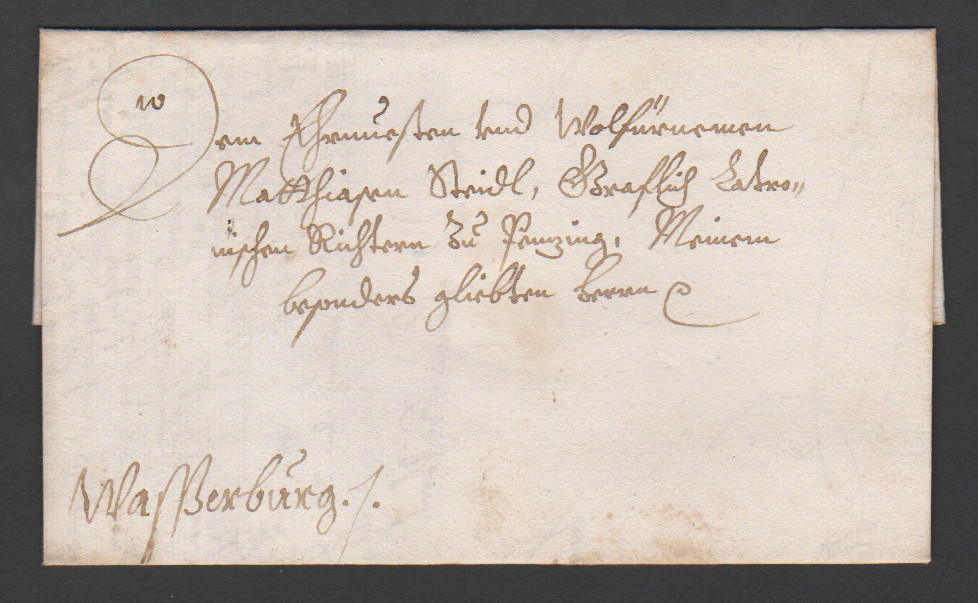 Dem Ehrnuesten vnd Wolfürnemen
Matthiasen Steidl, Graflich Latro„
nischen Richtern zu Penzing, Meinem
besonders gliebten Herrn
Wasserburg ./.